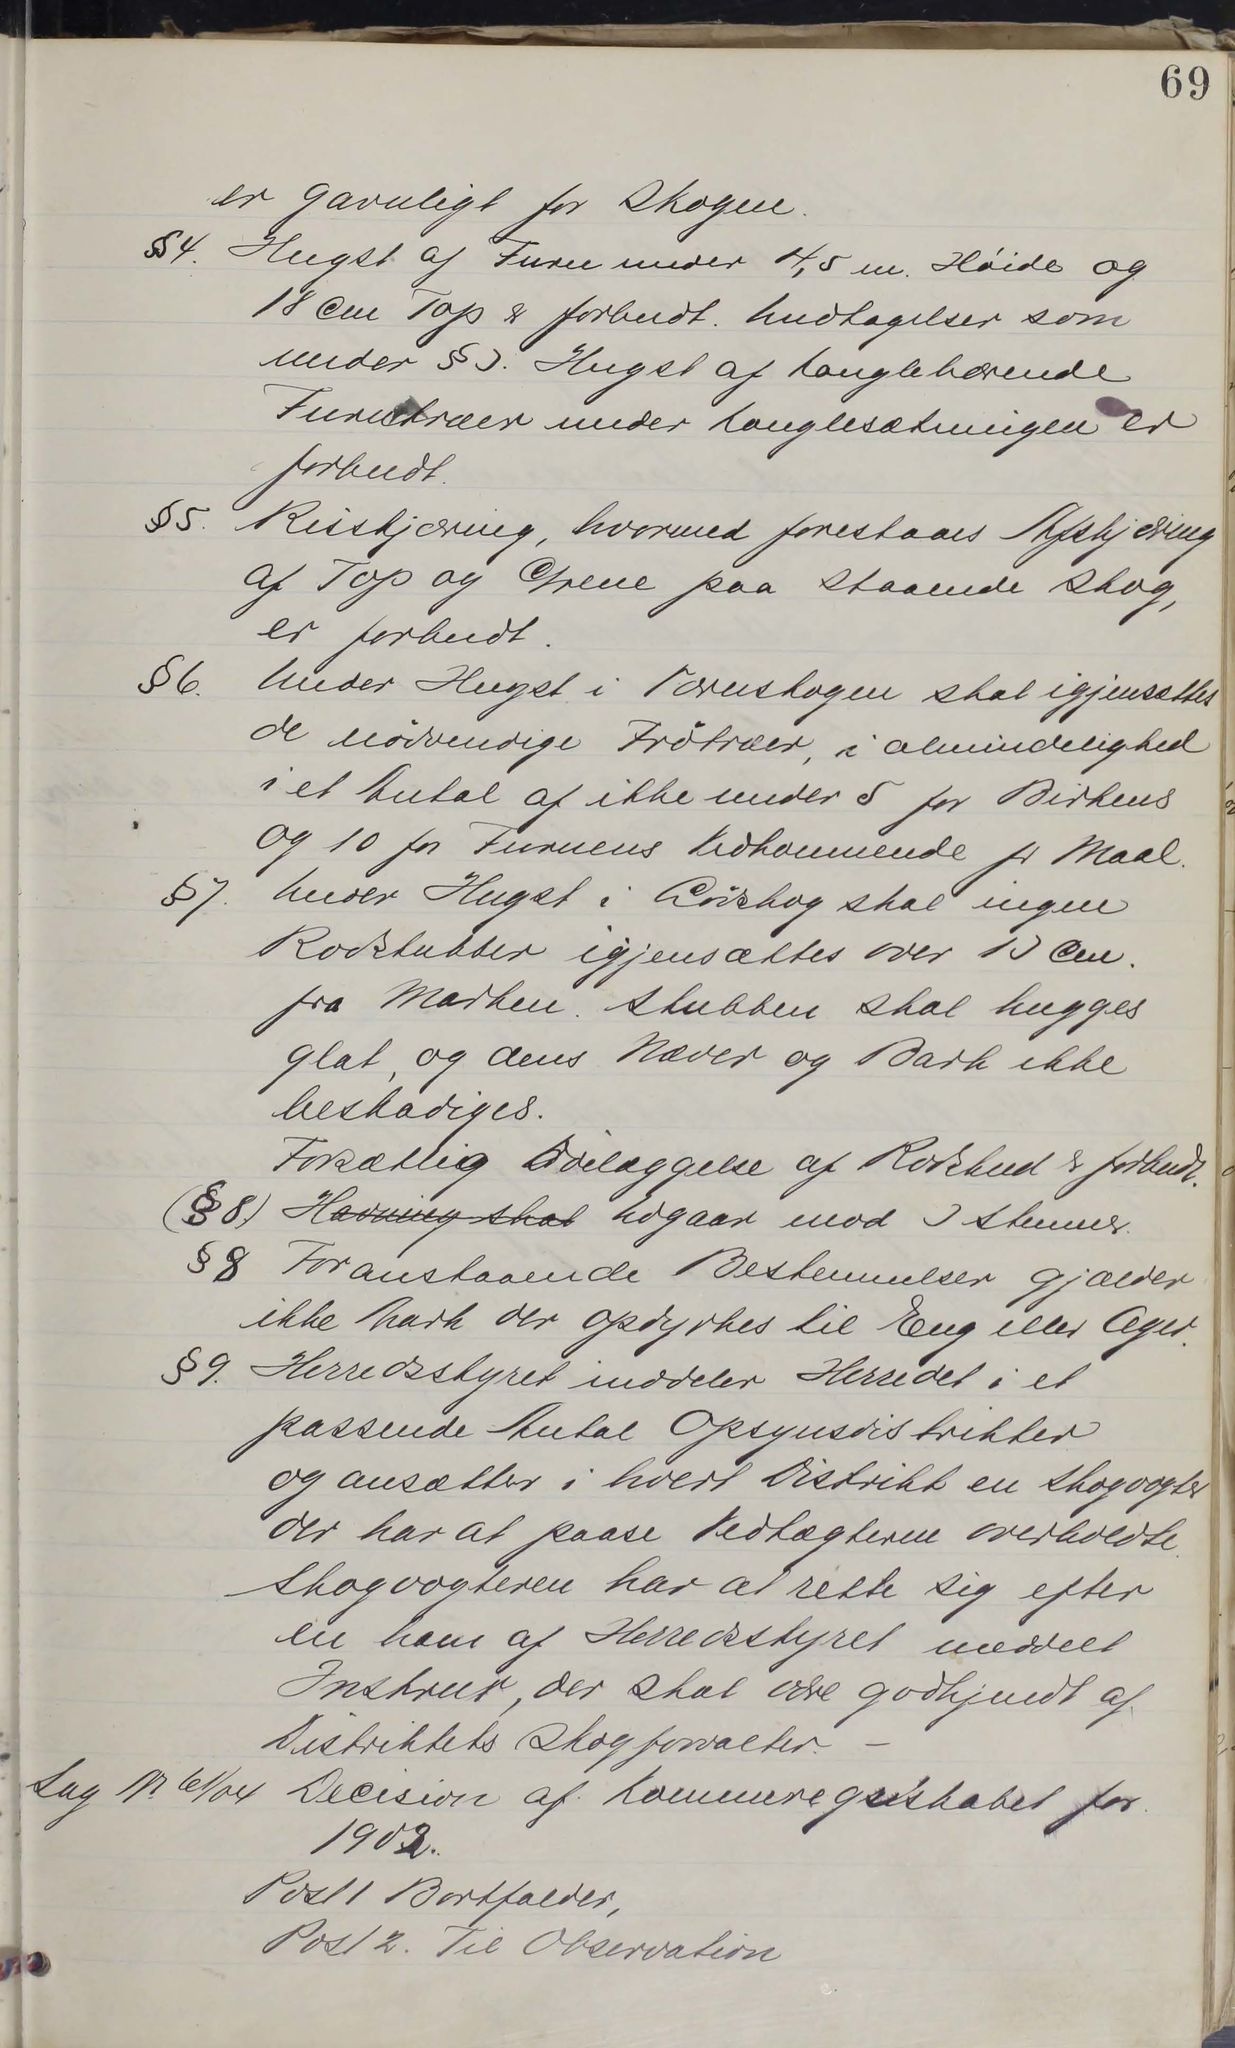 69
er gavnligt for Skogen.
§4. Hugst af Furu under 4,5 m. Høide og
18 Cm Top er forbudt. Undtagelser som
under §3. Hugst af konglebærende
Furutræer under konglesætningen er
forbudt.
§5. Risskjæring, hvormed forestaaes Afskjæring
af Top og Grene paa staaende Skog,
er forbudt.
§6. Under Hugst i skal igjensættes
de nödvendige Fröträer, i almindelighed
i et Antal af ikke under 5 for Birkens
og 10 for Furuens Vedkommende pr Maal.
§7. Under Hugst i Lövskog skal ingen
Rodstubber igjensættes over 13 Cm.
fra Marken. Stubben skal hugges
glat, og dens Næver og Bark ikke
beskadiges.
Forsætlig Ødelæggelse af Rodskud er forbudt.
(§8.) Havning skal Udgaar mod 3 Stemmer.
§8 Foranstaaende Bestemmelser gjælder
ikke Mark der opdyrkes til Eng eller Ager.
§9. Herredsstyret inddeler Herredet i et
passende Antal Opsynsdistrikter
og ansætter i hvert Distrikt en Skogvogter
der har at paase Vedtægterne overholdte.
Skogvogteren har at rette sig efter
en ham af Herredsstyret meddelt
Instrux, der skal være godkjendt af
Distriktets Skogforvalter. –
Sag Nr. 61/04 Decision af Kommuneregnskabet for
1902.
Post 1 Bortfalder,
Post 2. Til Observation